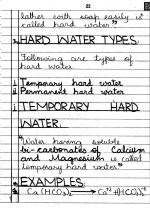 22
lather with soap easily is
called hard water"
HARD WATER TYPES.
Following are types of
hard water
i Temporary hard water
ii Permanent hard water
i TEMPORARY HARD
WATER.
"Water having soluble
bi-carbonates of Calcium
and Magnesium is called
temporary hard water"
EXAMPLES
Ca(HCO₃)₂ → Ca⁺² + (HCO₃)₂⁻